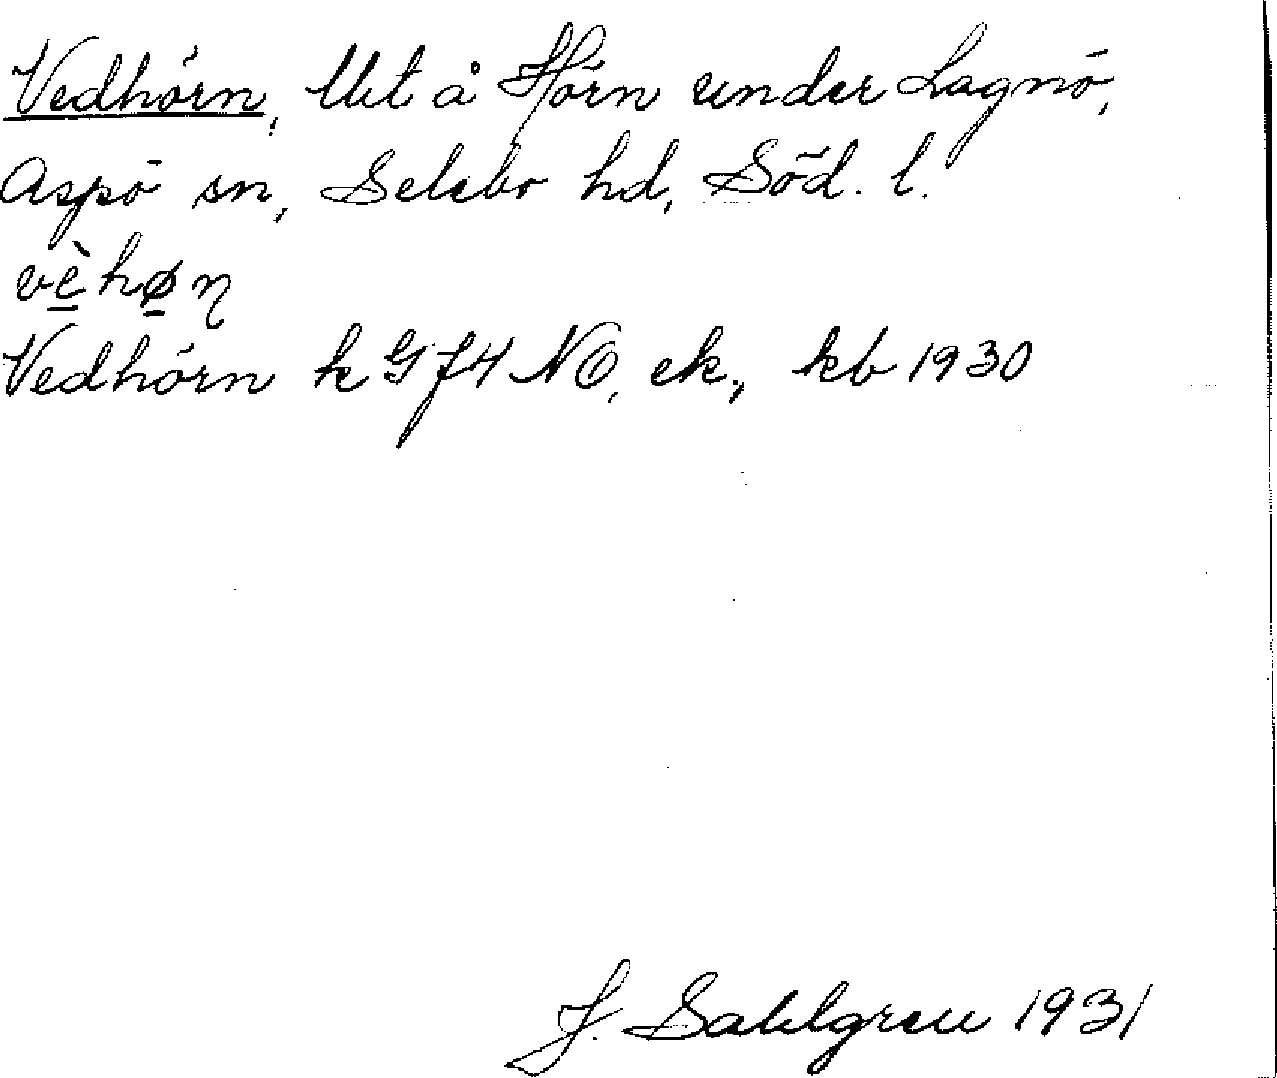 Vedhörn, Utt å Hörn under Lagnö,
Aspö sn, Selebo hd, Söd. l.
vèhøn
Vedhörn k G f 4 NO, ek, kb 1930
J. Sahlgren 1931